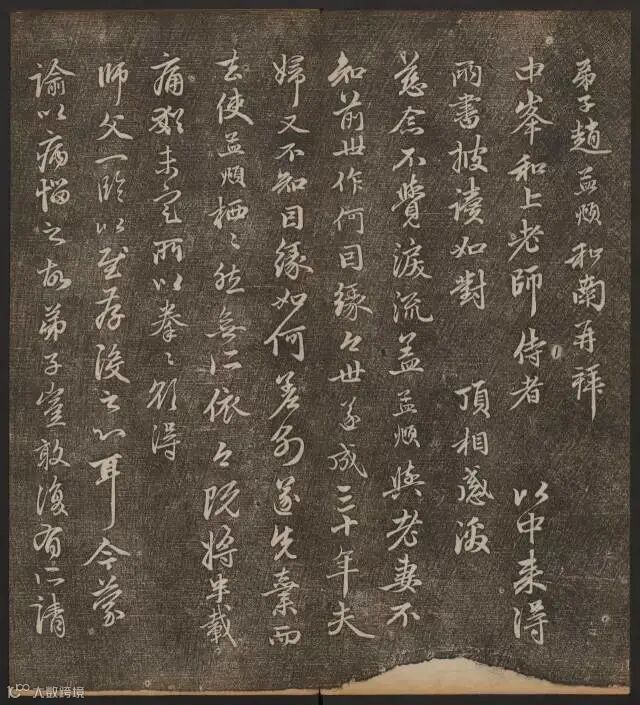 弟子趙孟頫和南再拜
中峯和上老師侍者 以中來得
兩書披讀如對 頂相感激
慈念不覺淚流蓋孟頫與老妻不
知前世作何因緣今世遂成三十年夫
婦又不知因緣如何差別遂先棄而
去使孟頫栖〻然無所依今既將半載
痛猶未定所以拳〻欲得
師父一臨以慰存沒之心耳今蒙
諭以病惱之故弟子豈敢復有所請
大数跨境